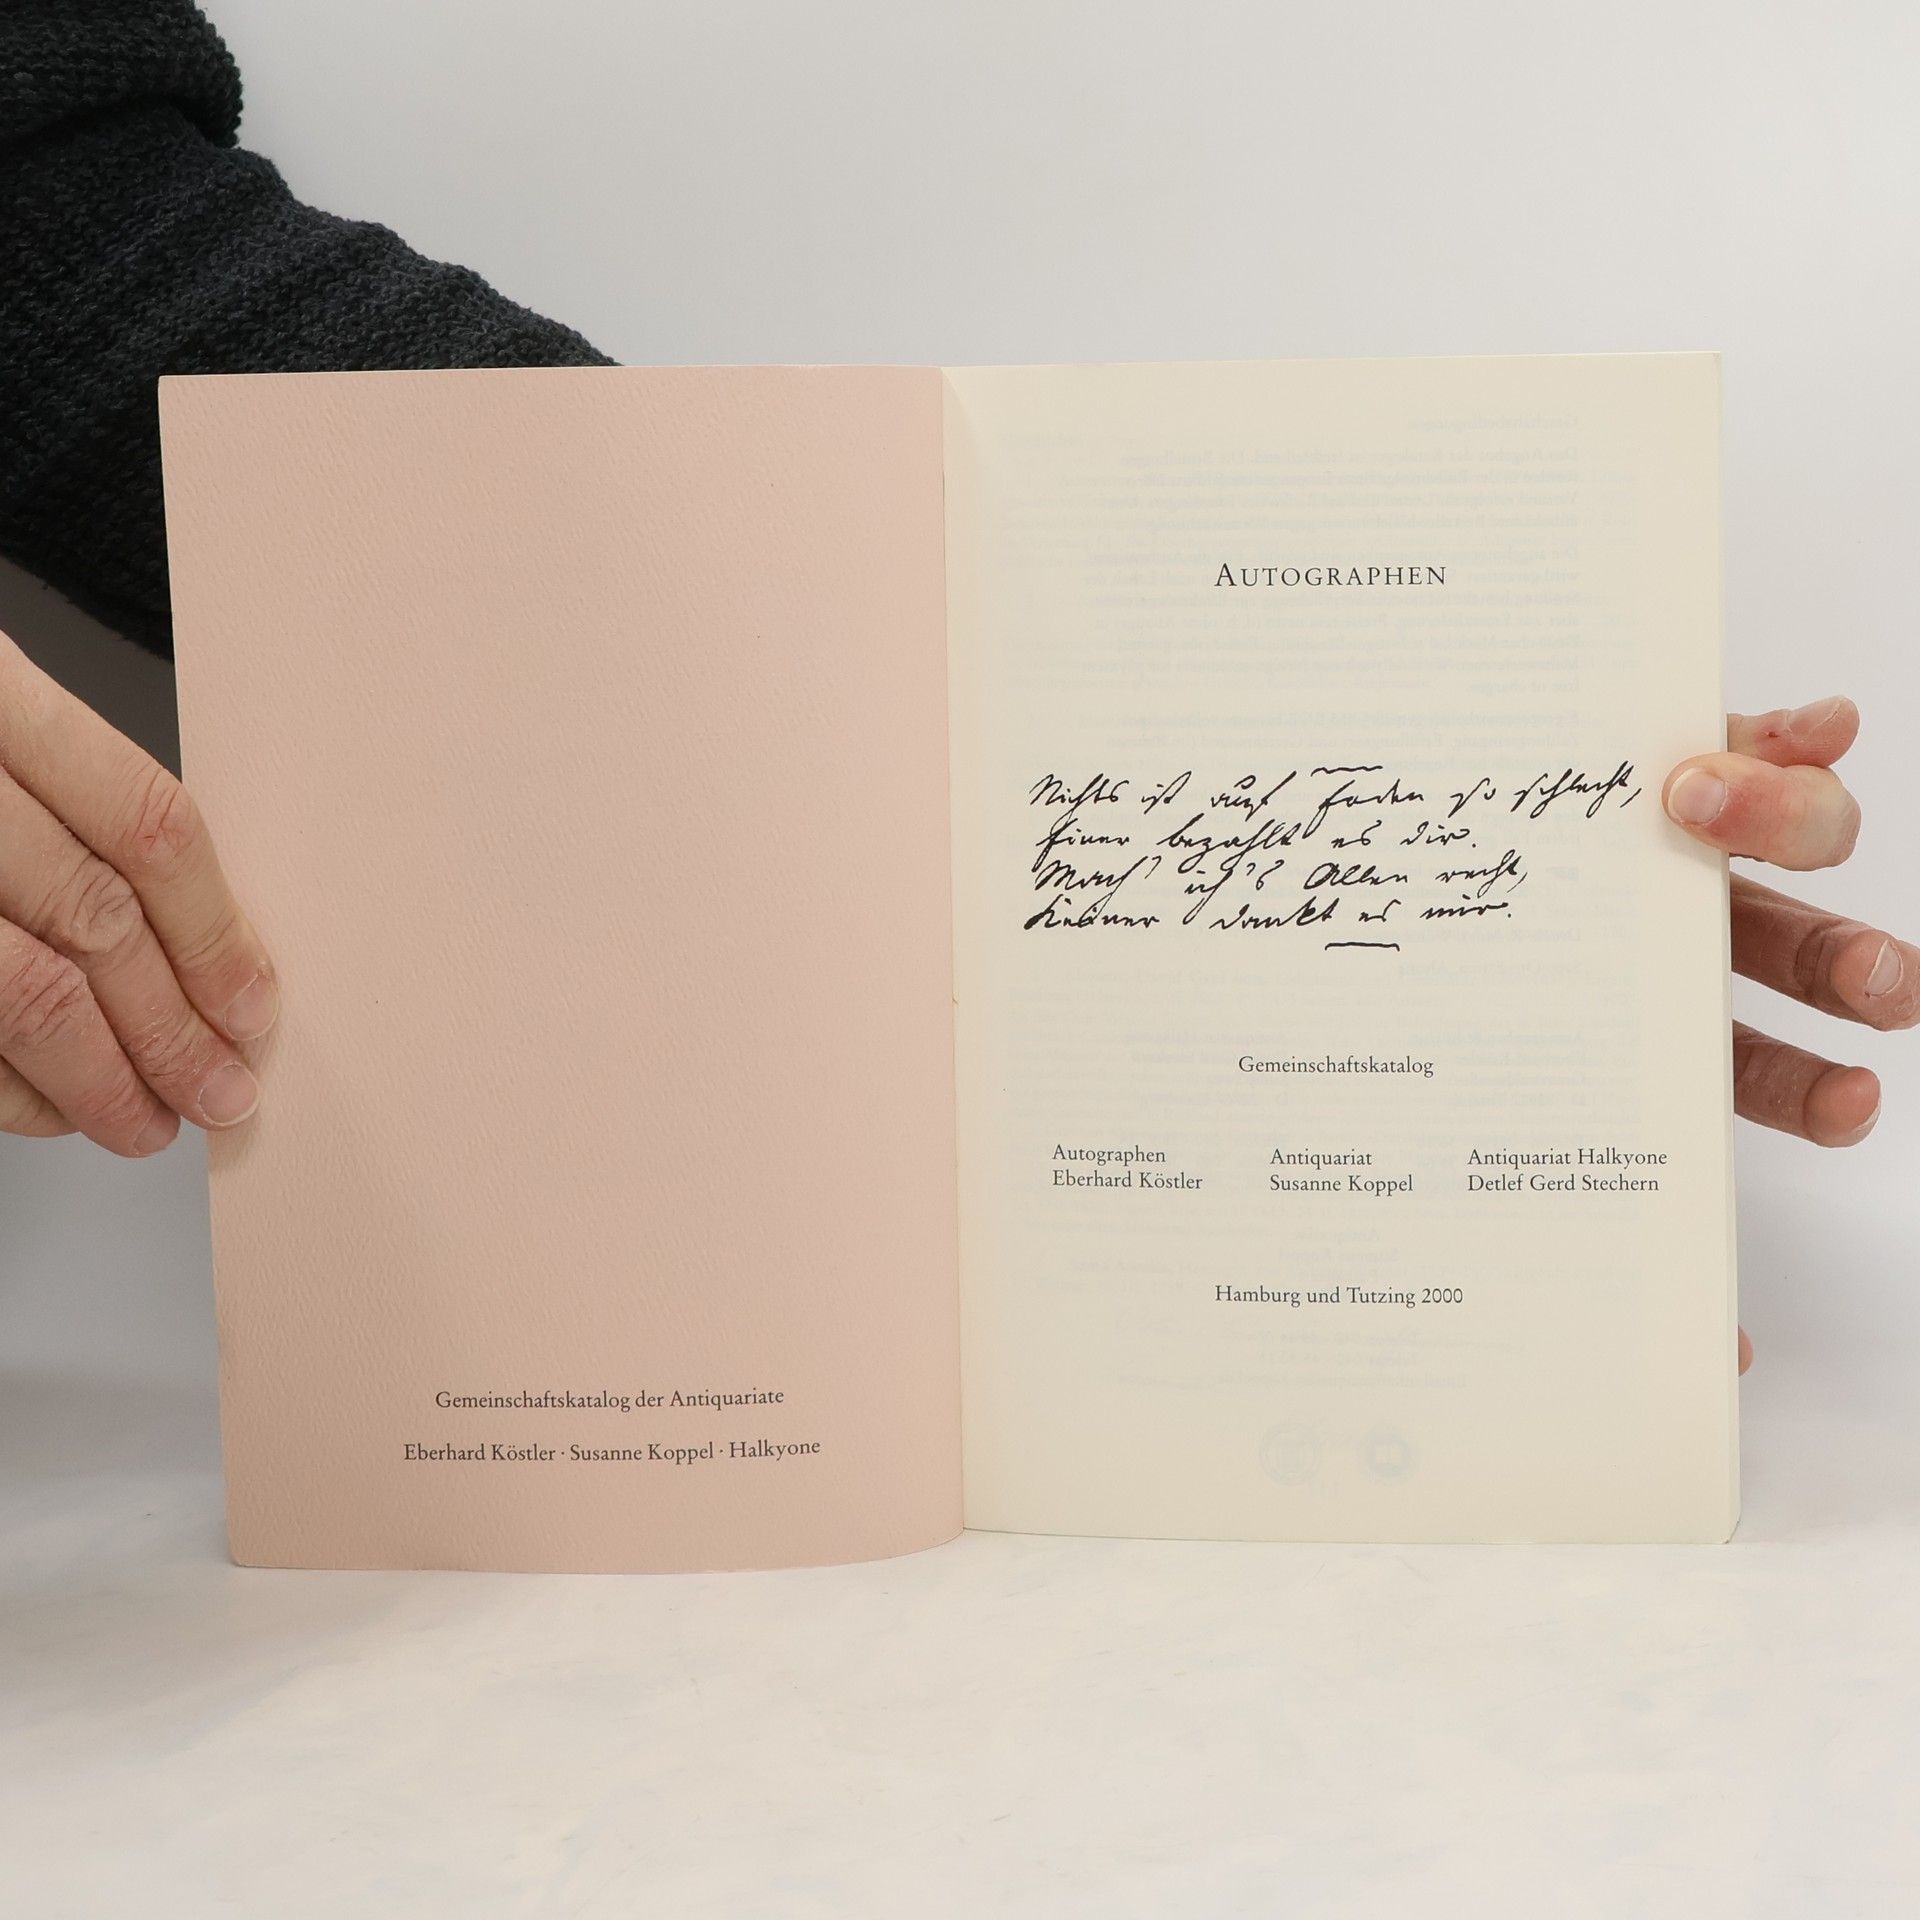 Gemeinschaftskatalog der Antiquariate
Eberhard Köstler · Susanne Koppel · Halkyone
AUTOGRAPHEN
Nichts ist auf Erden so schlecht,
Einer bezahlt es dir.
Mach' ich's Allen recht,
Keiner dankt es mir.
Gemeinschaftskatalog
Autographen
Eberhard Köstler
Antiquariat
Susanne Koppel
Antiquariat Halkyone
Detlef Gerd Stechern
Hamburg und Tutzing 2000